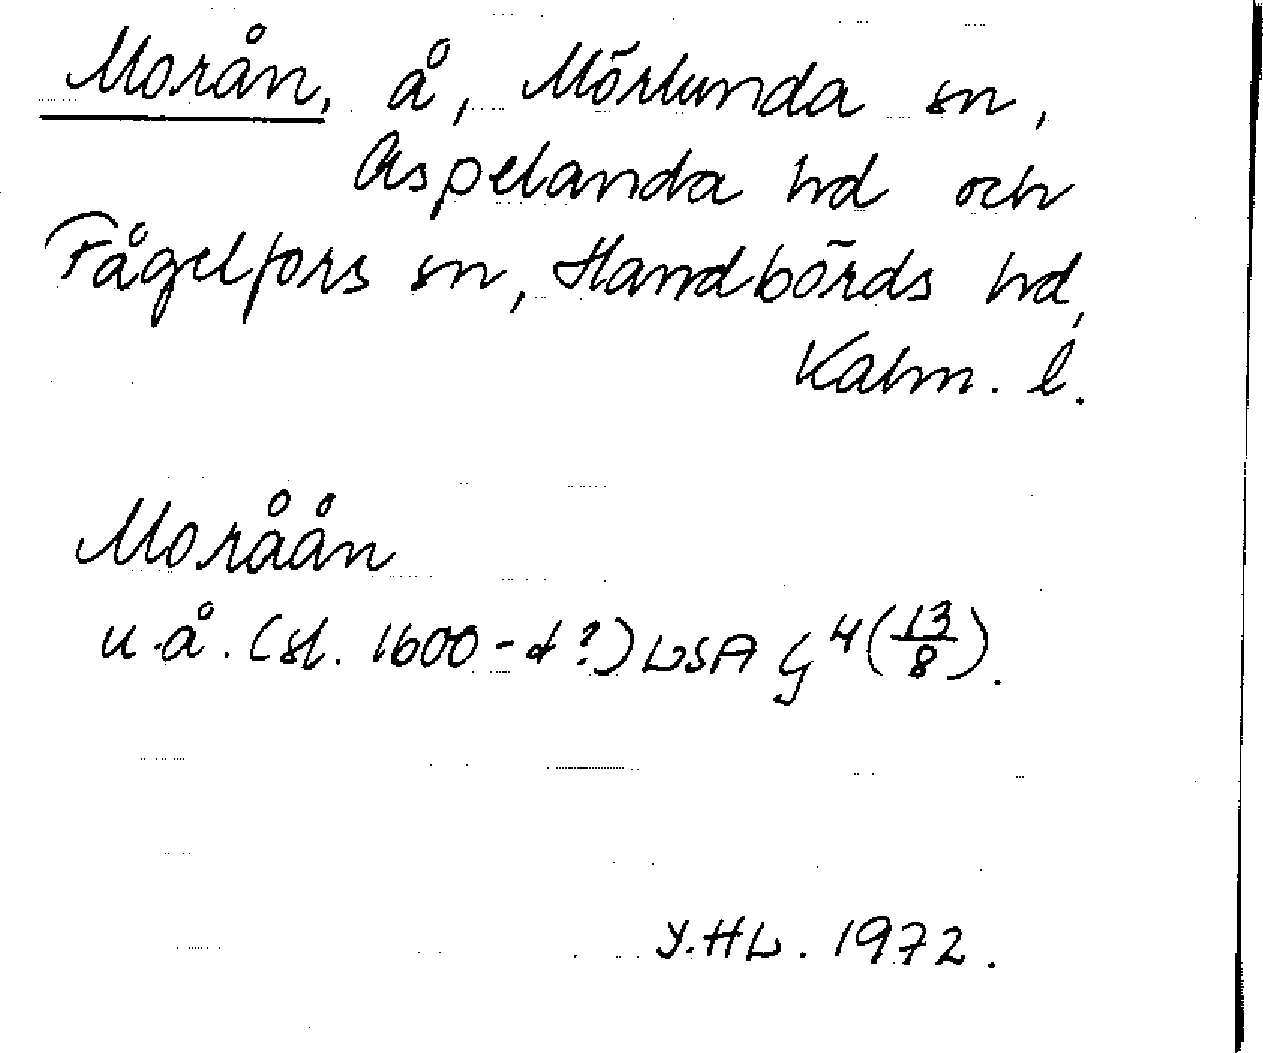 Morån, å, Mörlunda sn,
Aspelanda hd och
Fågelfors sn, Handbörds hd,
Kalm. l.
Moråån
u.å. (sl. 1600-t?) LSA G 4 (13/8).
Y.HL. 1972.